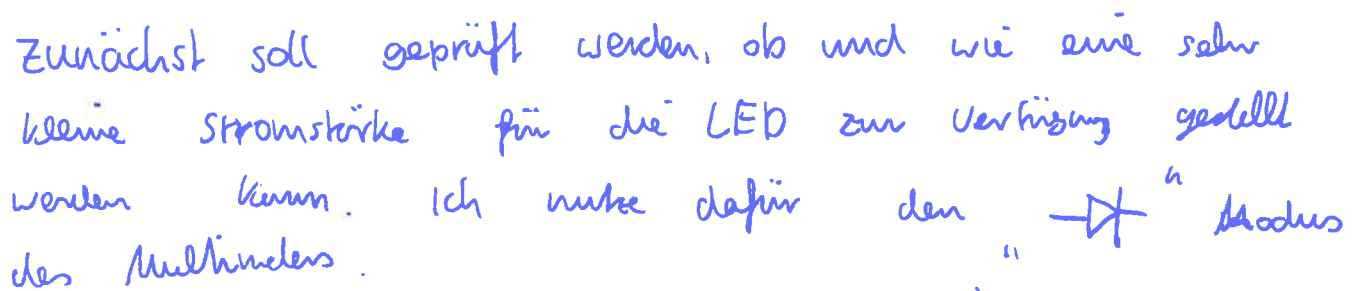 Zunächst soll geprüft werden, ob und wie eine sehr
kleine Stromstärke für die LED zur Verfügung gestellt
werden kann. Ich nutze dafür den „ " Modus
des Multimeters.